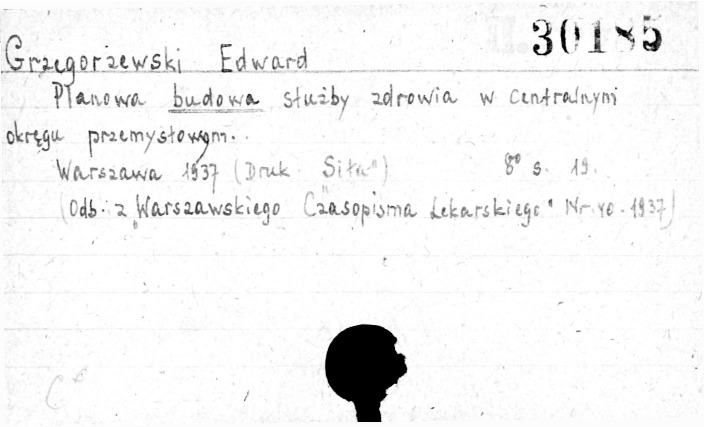 30185
Grzegorzewski Edward
Planowa budowa służby zdrowia w Centralnym
okręgu przemysłowym.
Warszawa 1937 (Druk "Siła") 8° s. 19.
(Odb. z "Warszawskiego Czasopisma Lekarskiego" Nr. 40. 1937)